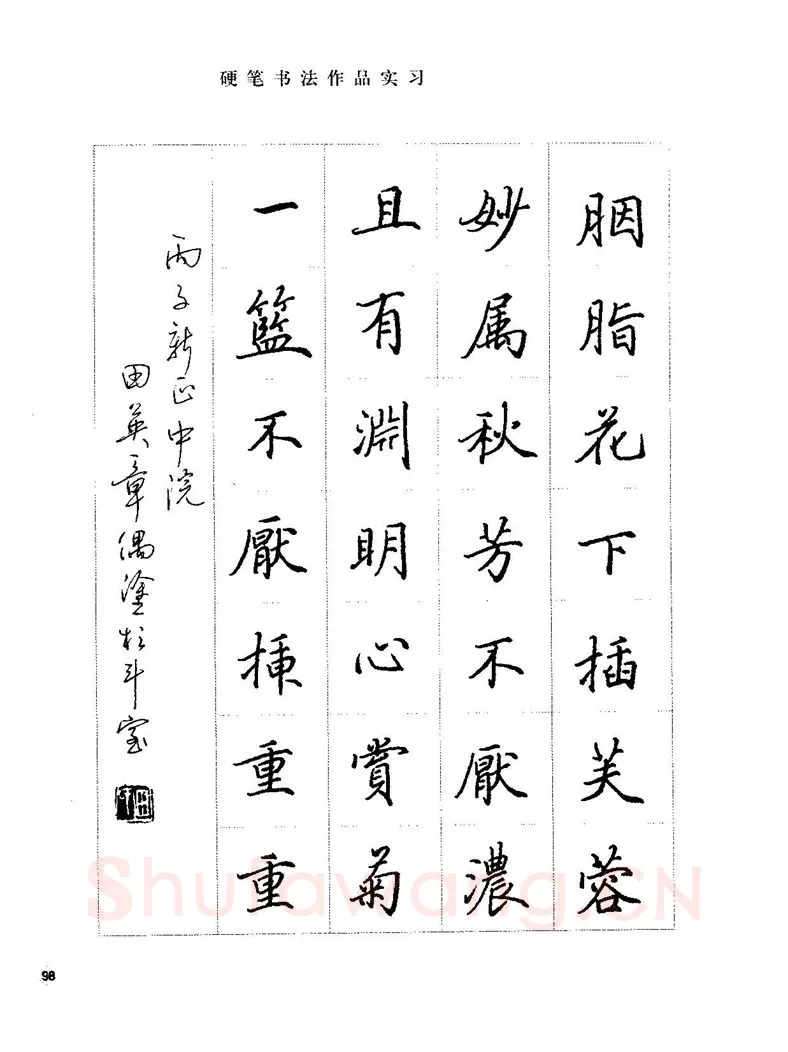 硬笔书法作品实习
胭脂花下插芙蓉
妙属秋芳不厭濃
且有淵明心賞菊
一籃不厭插重重
丙子新正中院
田英章偶塗於斗室
98
Shufawang.CN